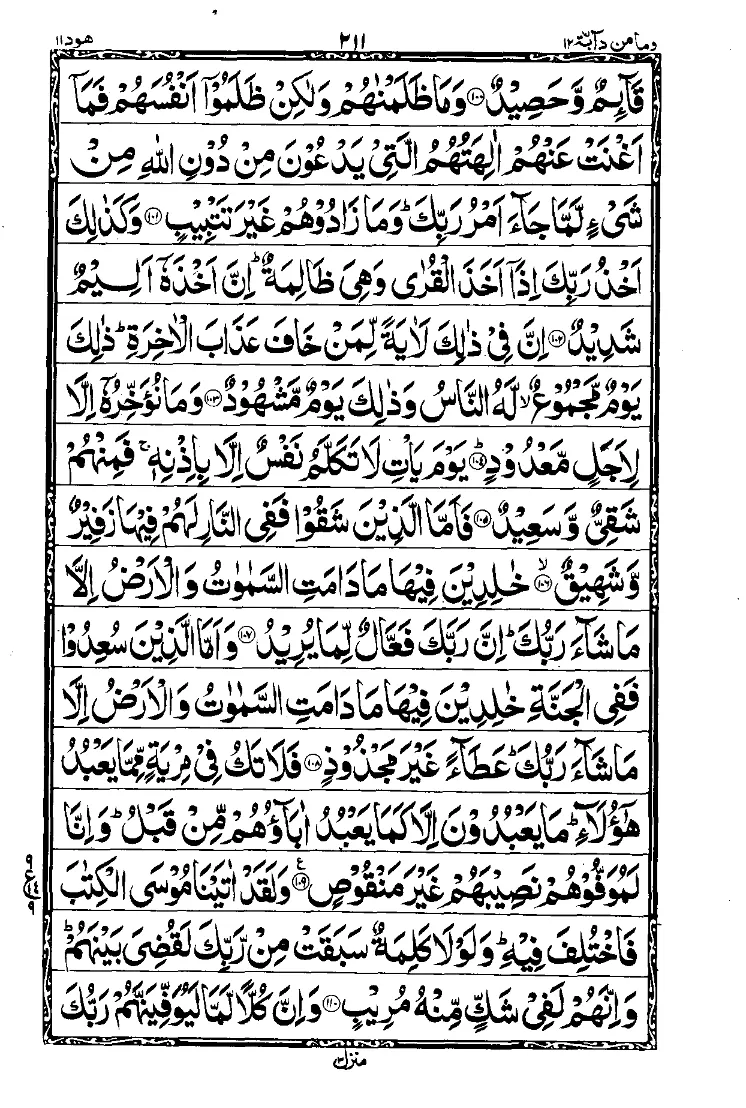 ومامن دآبة ١٢ ٢١١ هود ١١
قَآئِمٌ وَّحَصِيْدٌ ﴿۱۰۰﴾ وَمَا ظَلَمْنٰهُمْ وَلٰكِنْ ظَلَمُوْۤا اَنْفُسَهُمْ فَمَاۤ
اَغْنَتْ عَنْهُمْ اٰلِهَتُهُمُ الَّتِيْ يَدْعُوْنَ مِنْ دُوْنِ اللّٰهِ مِنْ
شَيْءٍ لَّمَّا جَآءَ اَمْرُ رَبِّكَ ؕ وَمَا زَادُوْهُمْ غَيْرَ تَتْبِيْبٍ ﴿۱۰۱﴾ وَكَذٰلِكَ
اَخْذُ رَبِّكَ اِذَاۤ اَخَذَ الْقُرٰى وَهِيَ ظَالِمَةٌ ؕ اِنَّ اَخْذَهٗۤ اَلِيْمٌ
شَدِيْدٌ ﴿۱۰۲﴾ اِنَّ فِيْ ذٰلِكَ لَاٰيَةً لِّمَنْ خَافَ عَذَابَ الْاٰخِرَةِ ؕ ذٰلِكَ
يَوْمٌ مَّجْمُوْعٌ ۙ لَّهُ النَّاسُ وَذٰلِكَ يَوْمٌ مَّشْهُوْدٌ ﴿۱۰۳﴾ وَمَا نُؤَخِّرُهٗۤ اِلَّا
لِاَجَلٍ مَّعْدُوْدٍ ؕ ﴿۱۰۴﴾ يَوْمَ يَاْتِ لَا تَكَلَّمُ نَفْسٌ اِلَّا بِاِذْنِهٖ ۚ فَمِنْهُمْ
شَقِيٌّ وَّسَعِيْدٌ ﴿۱۰۵﴾ فَاَمَّا الَّذِيْنَ شَقُوْا فَفِي النَّارِ لَهُمْ فِيْهَا زَفِيْرٌ
وَّشَهِيْقٌ ۙ ﴿۱۰۶﴾ خٰلِدِيْنَ فِيْهَا مَا دَامَتِ السَّمٰوٰتُ وَالْاَرْضُ اِلَّا
مَا شَآءَ رَبُّكَ ؕ اِنَّ رَبَّكَ فَعَّالٌ لِّمَا يُرِيْدُ ﴿۱۰۷﴾ وَاَمَّا الَّذِيْنَ سُعِدُوْا
فَفِي الْجَنَّةِ خٰلِدِيْنَ فِيْهَا مَا دَامَتِ السَّمٰوٰتُ وَالْاَرْضُ اِلَّا
مَا شَآءَ رَبُّكَ ؕ عَطَآءً غَيْرَ مَجْذُوْذٍ ﴿۱۰۸﴾ فَلَا تَكُ فِيْ مِرْيَةٍ مِّمَّا يَعْبُدُ
هٰۤؤُلَآءِ ؕ مَا يَعْبُدُوْنَ اِلَّا كَمَا يَعْبُدُ اٰبَآؤُهُمْ مِّنْ قَبْلُ ؕ وَاِنَّا
لَمُوَفُّوْهُمْ نَصِيْبَهُمْ غَيْرَ مَنْقُوْصٍ ﴿۱۰۹﴾ ع وَلَقَدْ اٰتَيْنَا مُوْسَى الْكِتٰبَ
فَاخْتُلِفَ فِيْهِ ؕ وَلَوْلَا كَلِمَةٌ سَبَقَتْ مِنْ رَّبِّكَ لَقُضِيَ بَيْنَهُمْ ؕ
وَاِنَّهُمْ لَفِيْ شَكٍّ مِّنْهُ مُرِيْبٍ ﴿۱۱۰﴾ وَاِنَّ كُلًّا لَّمَّا لَيُوَفِّيَنَّهُمْ رَبُّكَ
منزل ٣